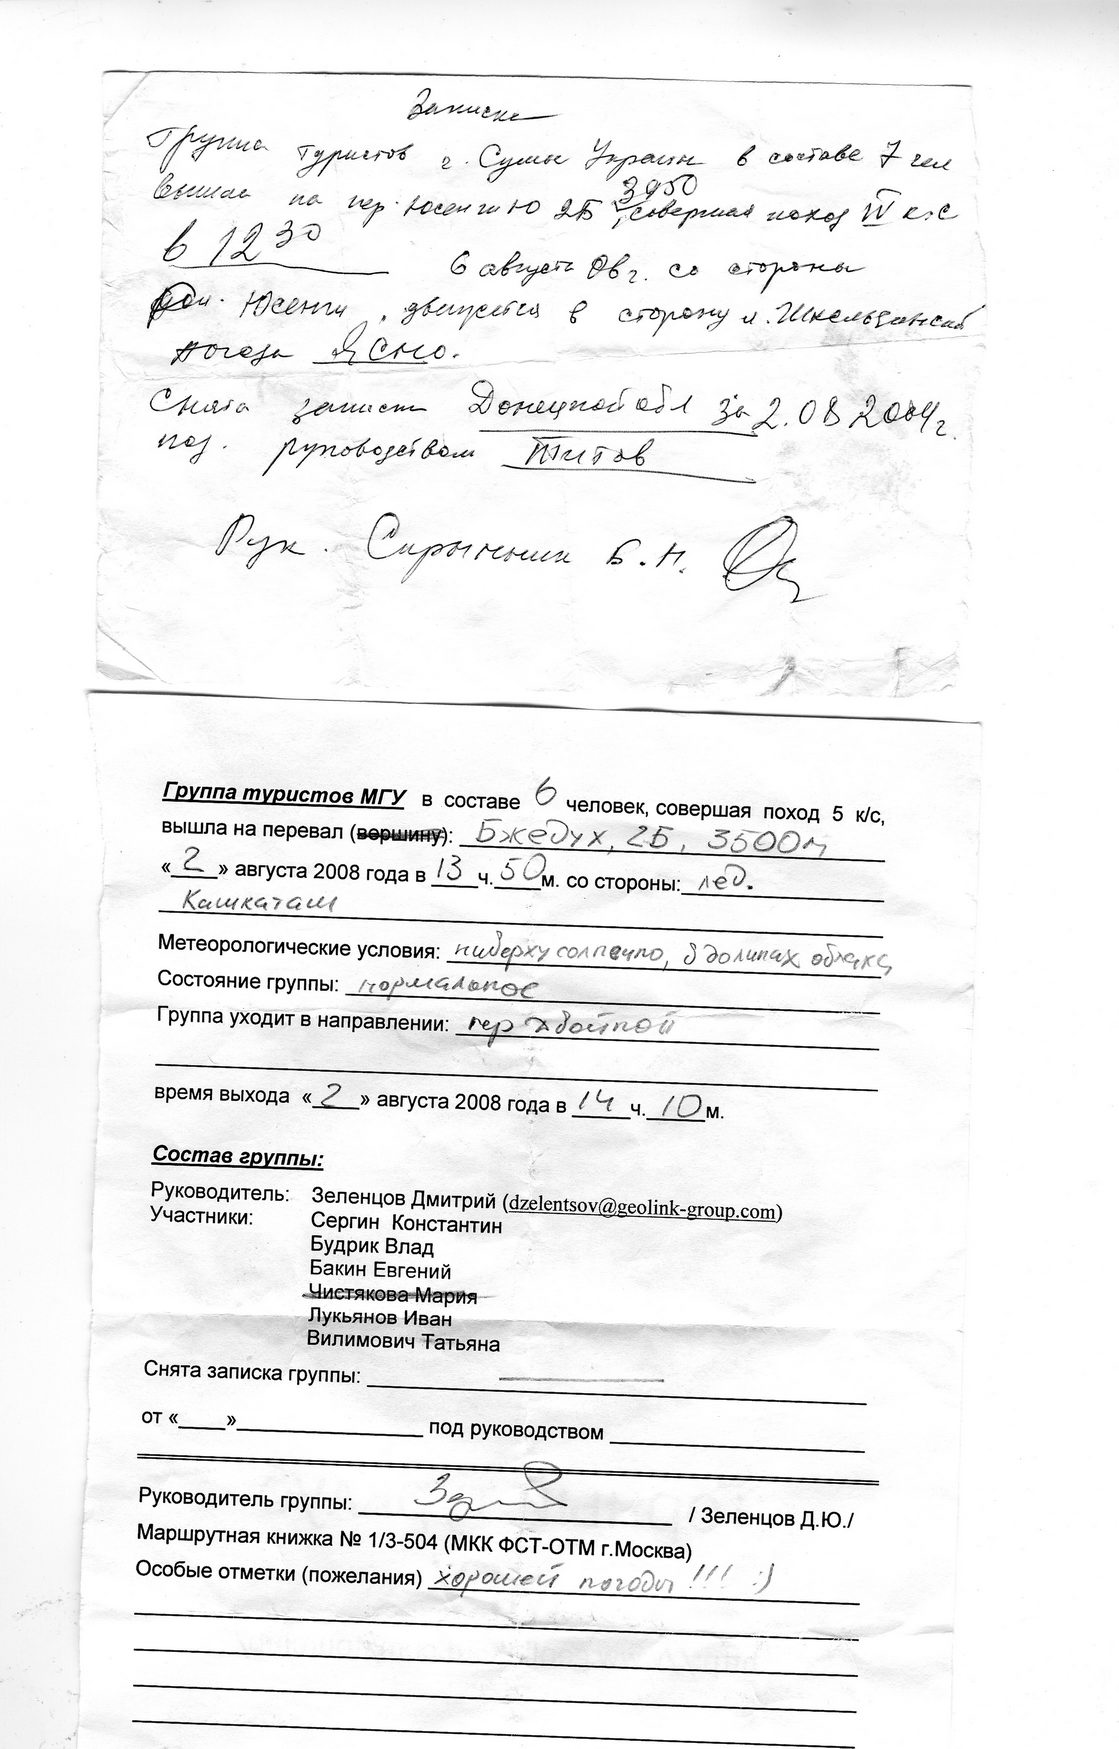 Записка
Группа туристов г. Сумы Украины в составе 7 чел
вышла на пер. Юсенги Ю 2Б 3950, совершая поход IV к.с
в 12 30 6 августа 08 г. со стороны
дол. Юсенги, движется в сторону л. Шхельдинский
погода Ясно.
Снята записка Донецкой обл за 2.08 2004г.
под. руководством Титов
Рук. Скрыньник Б.Н.
Группа туристов МГУ в составе 6 человек, совершая поход 5 к/с,
вышла на перевал (вершину): Бжедух, 2Б, 3500м
«2» августа 2008 года в 13 ч. 50 м. со стороны: лед.
Кашкаташ
Метеорологические условия: наверху солнечно, в долинах облака
Состояние группы: нормальное
Группа уходит в направлении: пер Двойной
время выхода «2» августа 2008 года в 14 ч. 10 м.
Состав группы:
Руководитель: Зеленцов Дмитрий (dzelentsov@geolink-group.com)
Участники: Сергин Константин
Будрик Влад
Бакин Евгений
Чистякова Мария
Лукьянов Иван
Вилимович Татьяна
Снята записка группы: ————
от «____»________________ под руководством ____________________
Руководитель группы: ____________________ / Зеленцов Д.Ю./
Маршрутная книжка № 1/3-504 (МКК ФСТ-ОТМ г.Москва)
Особые отметки (пожелания) хорошей погоды!!! :)